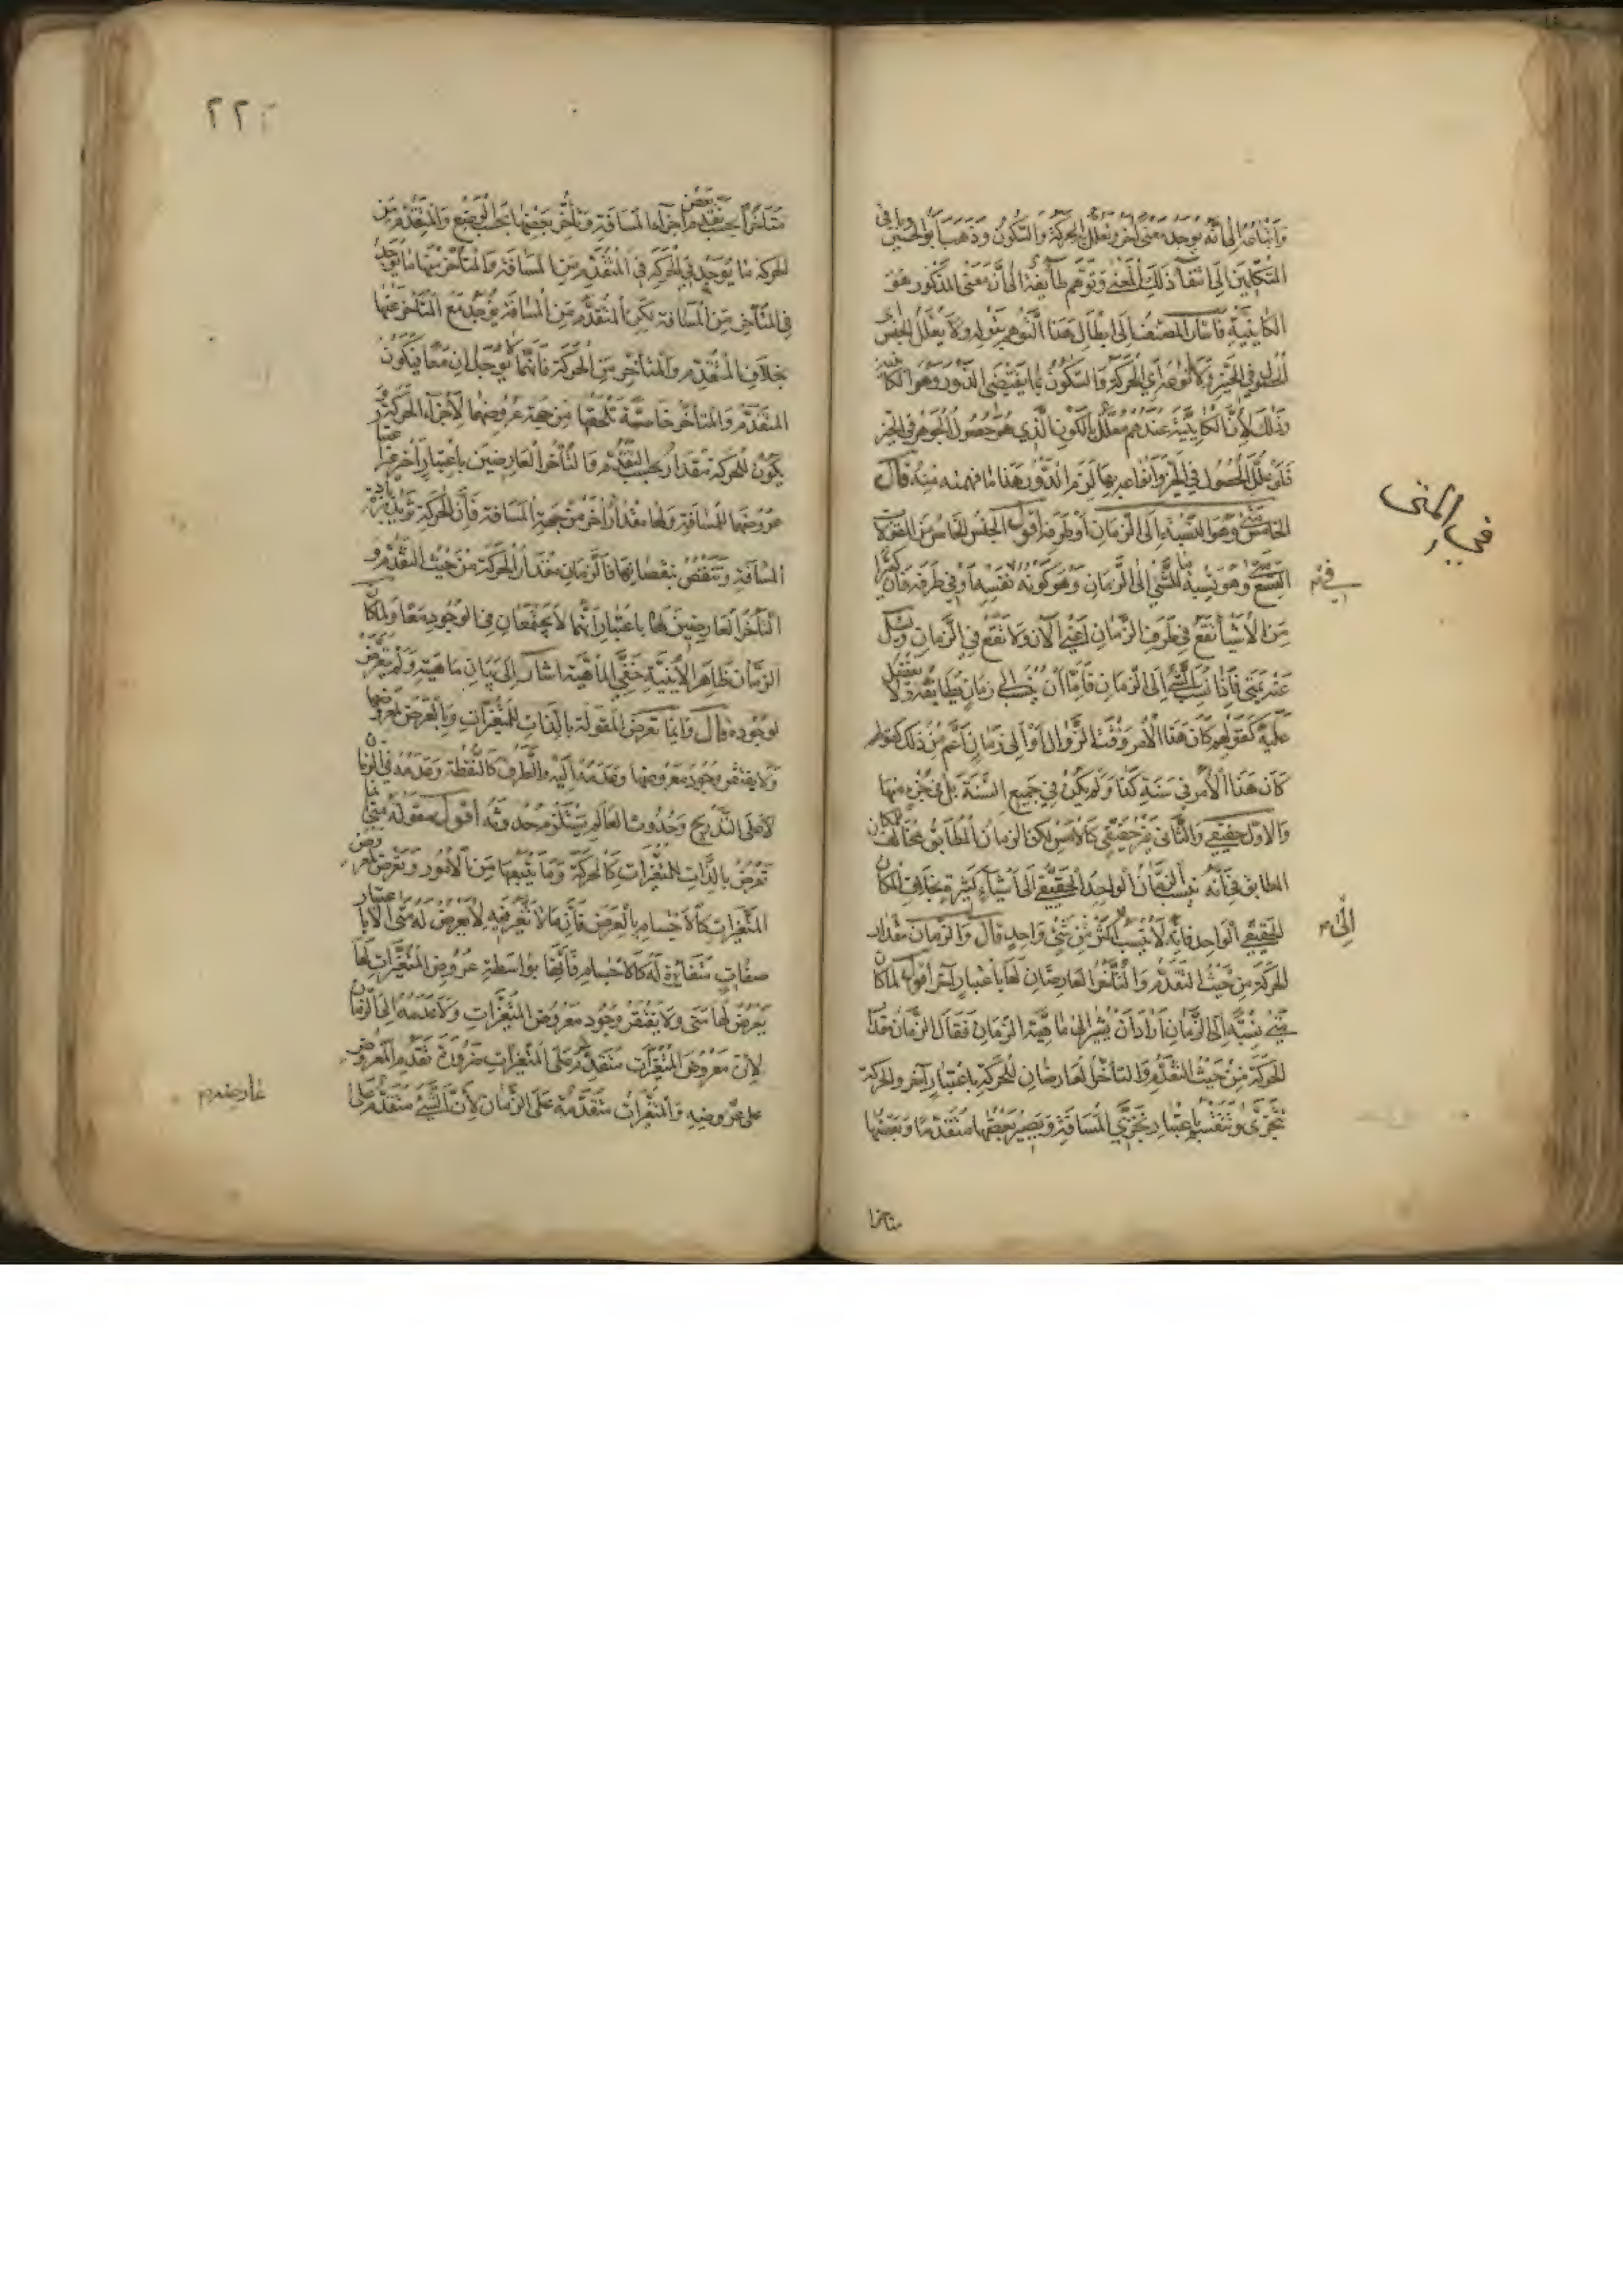 واتباعه الى انه يوجد معنى آخر وتعلل الحركة والسكون وذهب ابو الحسين وباقي
المتكلمين الى انتفاء ذلك المعنى وتوهم طائفة الى ان معنى المذكور هو
الكاينية فاشار المصنف الى ابطال هذا التوهم بقوله ولا يعلل الجنس
الحصول في الحيز ولا انواعه اي الحركة والسكون بما يقتضى الدور وهو الكاينية
وذلك لان الكاينية عندهم معلل بالكون الذي هو حصول الجوهر في الحيز
فلو علل الحصول في الحيز وانواعه بها لزم الدور هذا ما فهمته منه قال
الخامس متى وهو النسبة الى الزمان او طرفه اقول الجنس الخامس من المقولات
التسع متى وهو نسبة ما للشيء الى الزمان وهو كونه نفسه او في طرفه فان كثيرا
من الاشياء تقع في طرف الزمان اعني الآن ولا تقع في الزمان ويسئل
عنه بمتى فاذا نسب الشيء الى الزمان فاما ان ينسب الى زمان يطابقه ولا يفضل
عليه كقولهم كان هذا الامر وقت الزوال او الى زمان اعم من ذلك كقولهم
كان هذا الامر في سنة كذا ولم يكن في جميع السنة بل في جزء منها
والاول حقيقي والثاني غير حقيقي كالاين لكن الزمان المطابق يخالف المكان
المطابق في انه ينسب الزمان الواحد الحقيقي الى اشياء كثيرة بخلاف المكان
الحقيقي الواحد فانه لا ينسب اكثر من شيء واحد قال والزمان مقدار
الحركة من حيث التقدم والتأخر العارضان لها باعتبار آخر اقول لما كان
متى نسبة الى الزمان اراد ان يشير الى ماهية الزمان فقال الزمان مقدار
الحركة من حيث التقدم والتأخر العارضان للحركة باعتبار آخر والحركة
تتجزى وتنقسم باعتبار تجزي المسافة ويصير بعضها متقدما وبعضها
متاخرا
في المتى
في
الى
٢٢
متأخرا بحسب تقدم بعض اجزاء المسافة وتأخر بعضها بحسب الوضع والمتقدم من
الحركة ما يوجد في الحركة في المتقدم من المسافة والمتأخر منها ما يوجد
في المتأخر من المسافة لكن المتقدم من المسافة يوجد مع المتأخر عنها
بخلاف المتقدم والمتأخر من الحركة فانهما لا يوجدان معا فيكون
المتقدم والمتأخر خاصية تلحقها من جهة عروضهما لاجزاء الحركة و
يكون للحركة مقدار بحسب التقدم والتأخر العارضين باعتبار آخر غير
عروضهما للمسافة ولها مقدار آخر من جهة المسافة فان الحركة تزيد بزيادة
المسافة وتنقص بنقصانها فالزمان مقدار الحركة من حيث التقدم و
التأخر العارضين لها باعتبار انهما لا يجتمعان في الوجود معا ولما كان
الزمان ظاهر الاينية خفي الماهية اشار الى بيان ماهيته ولم يتعرض
لوجوده قال وانما تعرض المقولة بالذات للمتغيرات وبالعرض لمعروضها
ولا يفتقر وجود معروضها وعدمه اليه والطرف كالنقطة وعدمه في الزمان
لا على التدريج وحدوث العالم يستلزم حدوثه اقول مقولة متى انما
تعرض بالذات للمتغيرات كالحركة وما يتبعها من الامور وتعرض لمعروض
المتغيرات كالاجسام بالعرض فان ما لا تغير فيه لا يعرض له متى الا باعتبار
صفات متغايرة له كالاجسام فانها بواسطة عروض المتغيرات لها
يعرض لها متى ولا يفتقر وجود معروض المتغيرات ولا عدمه الى الزمان
لان معروض المتغيرات متقدم على المتغيرات ضرورة تقدم المعروض
على عروضه والمتغيرات متقدمة على الزمان لان الشيء متقدم على
عارضه